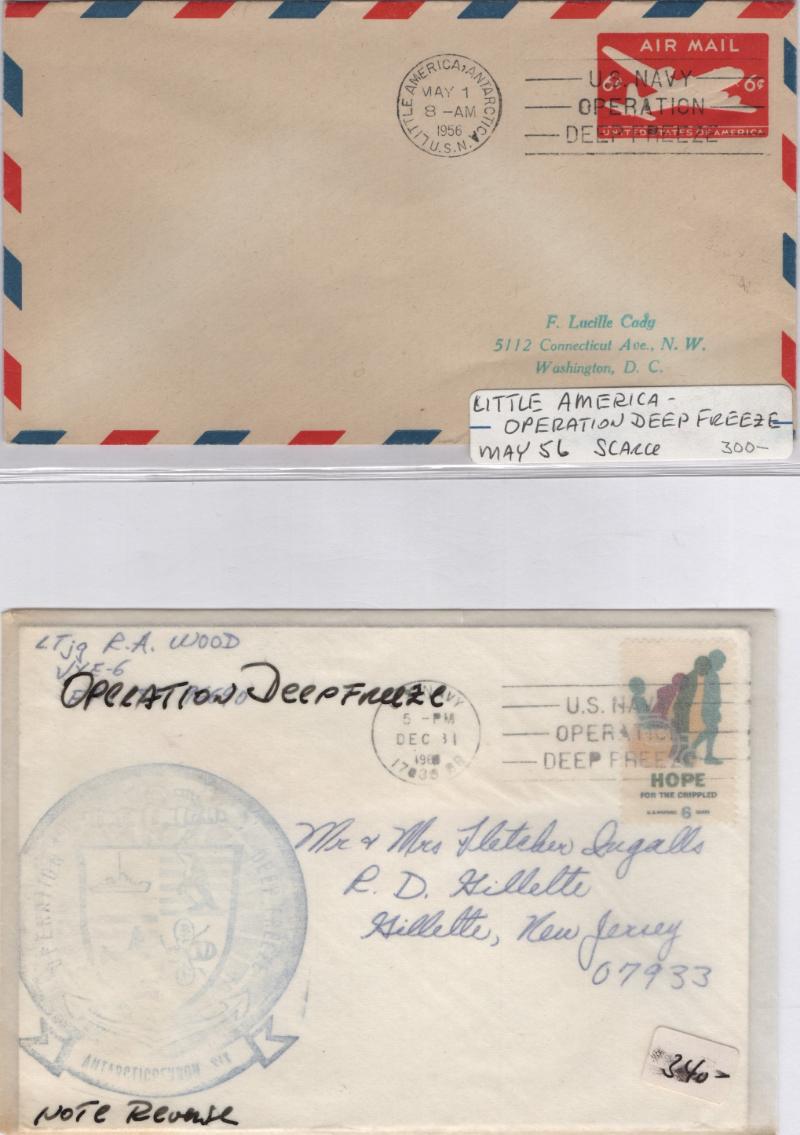 AIR MAIL
6¢ 6¢
UNITED STATES OF AMERICA
LITTLE AMERICA, ANTARCTICA
MAY 1
8 -AM
1956
U.S.N.
U.S. NAVY
OPERATION
DEEP FREEZE
F. Lucille Cady
5112 Connecticut Ave., N. W.
Washington, D. C.
LITTLE AMERICA -
OPERATION DEEP FREEZE
MAY 56 SCARCE 300-
LTjg R.A. WOOD
OPERATION DEEP FREEZE
NAVY
5 -PM
DEC 31
U.S. NAVY
OPERATION
DEEP FREEZE
HOPE
FOR THE CRIPPLED
U.S. POSTAGE 6 CENTS
Mr & Mrs Fletcher Ingalls
R. D. Gillette
Gillette, New Jersey
07933
OPERATION DEEP FREEZE
ANTARCTICDEVRON SIX
340-
NOTE Reverse